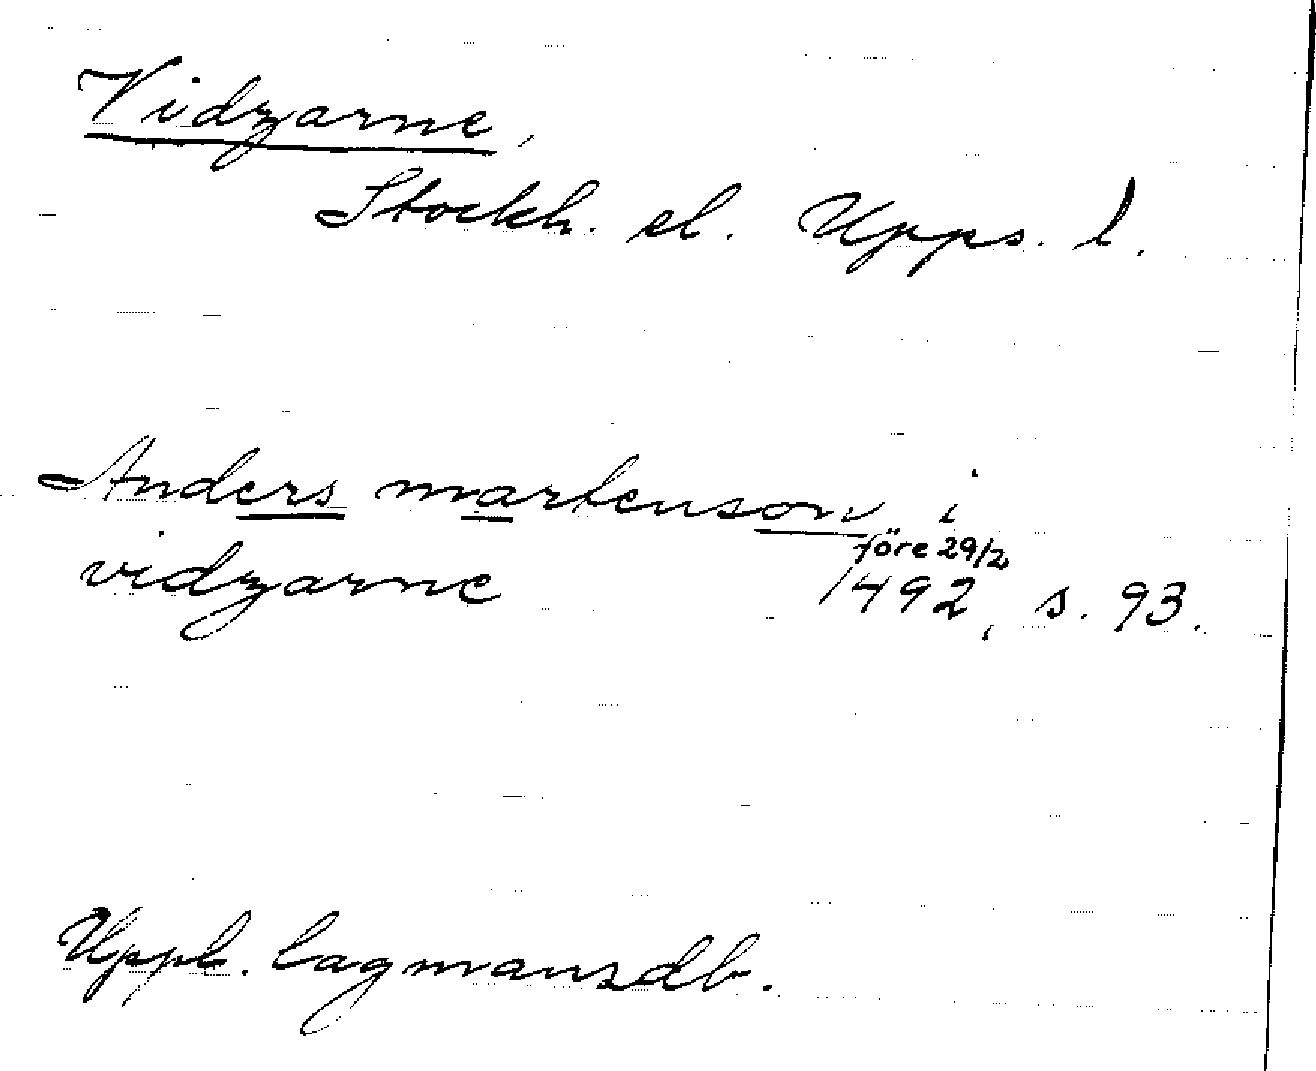 Vidzarne,
Stockh. el. Upps. l.
Anders martenson i
före 29/2
vidzarne 1492, s. 93.
Uppl. lagmansdb.